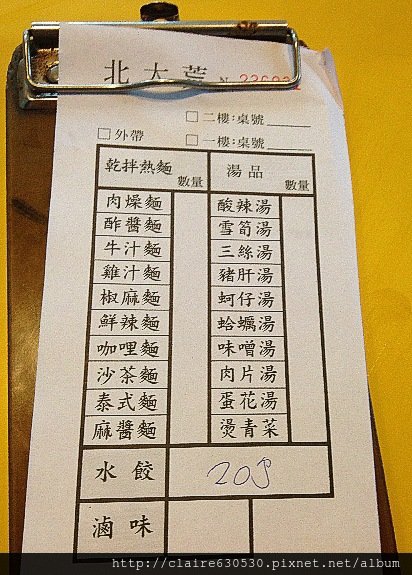 北大荒 No 236031
□二樓：桌號
□外帶 □一樓：桌號
乾拌熱麵 數量 湯品 數量
肉燥麵 酸辣湯
酢醬麵 雪筍湯
牛汁麵 三絲湯
雞汁麵 豬肝湯
椒麻麵 蚵仔湯
鮮辣麵 蛤蠣湯
咖哩麵 味噌湯
沙茶麵 肉片湯
泰式麵 蛋花湯
麻醬麵 燙青菜
水餃 20
滷味
http://claire630530.pixnet.net/album